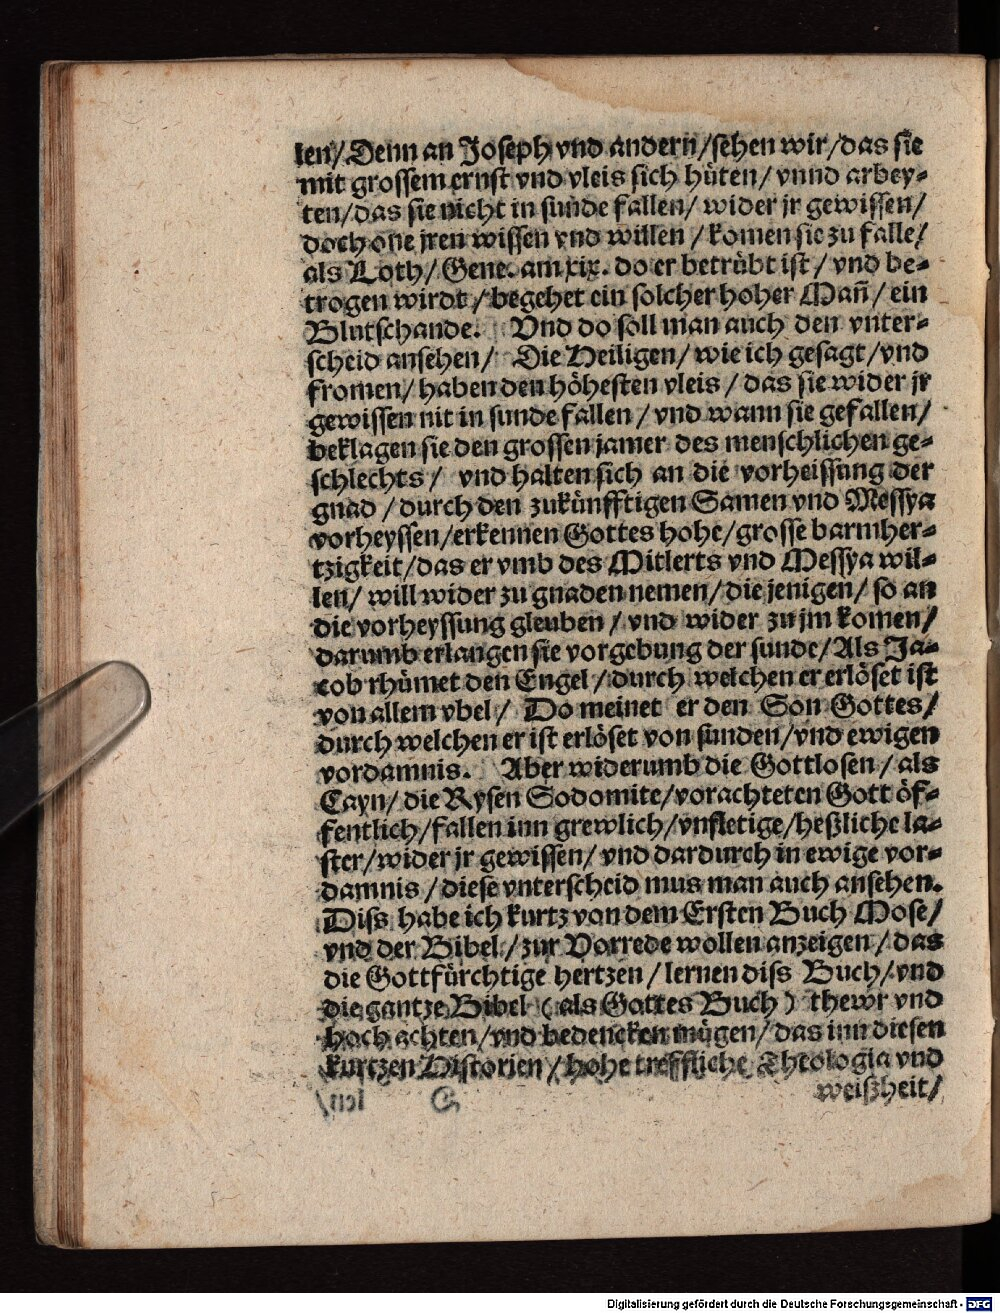 len/ Denn an Joseph vnd andern/ sehen wir/ das sie
mit grossem ernst vnd vleis sich hüten/ vnnd arbey-
ten/ das sie nicht in sunde fallen/ wider jr gewissen/
doch one jren wissen vnd willen/ komen sie zu falle/
als Loth/ Gene. am xix. do er betrübt ist/ vnd be-
trogen wirdt/ begehet ein solcher hoher Mañ/ ein
Blutschande. Vnd do soll man auch den vnter-
scheid ansehen/ Die Heiligen/ wie ich gesagt/ vnd
fromen/ haben den höhesten vleis/ das sie wider jr
gewissen nit in sunde fallen/ vnd wann sie gefallen/
beklagen sie den grossen jamer des menschlichen ge-
schlechts/ vnd halten sich an die vorheissung der
gnad/ durch den zukünfftigen Samen vnd Messya
vorheyssen/ erkennen Gottes hohe/ grosse barmher-
tzigkeit/ das er vmb des Mitlerts vnd Messya wil-
len/ will wider zu gnaden nemen/ die jenigen/ so an
die vorheyssung gleuben/ vnd wider zu jm komen/
darumb erlangen sie vorgebung der sunde/ Als Ja-
cob rhümet den Engel/ durch welchen er erlöset ist
von allem vbel/ Do meinet er den Son Gottes/
durch welchen er ist erlöset von sunden/ vnd ewigen
vordamnis. Aber widerumb die Gottlosen/ als
Cayn/ die Rysen Sodomite/ vorachteten Gott öf-
fentlich/ fallen inn grewlich/ vnfletige/ heßliche la-
ster/ wider jr gewissen/ vnd dardurch in ewige vor-
damnis/ diese vnterscheid mus man auch ansehen.
Diss habe ich kurtz von dem Ersten Buch Mose/
vnd der Bibel/ zur Vorrede wollen anzeigen/ das
die Gottfürchtige hertzen/ lernen diss Buch/ vnd
die gantze Bibel (als Gottes Buch) thewr vnd
hoch achten/ vnd bedencken mügen/ das inn diesen
kurtzen Historien/ hohe treffliche Theologia vnd
weißheit/
Digitalisierung gefördert durch die Deutsche Forschungsgemeinschaft - DFG